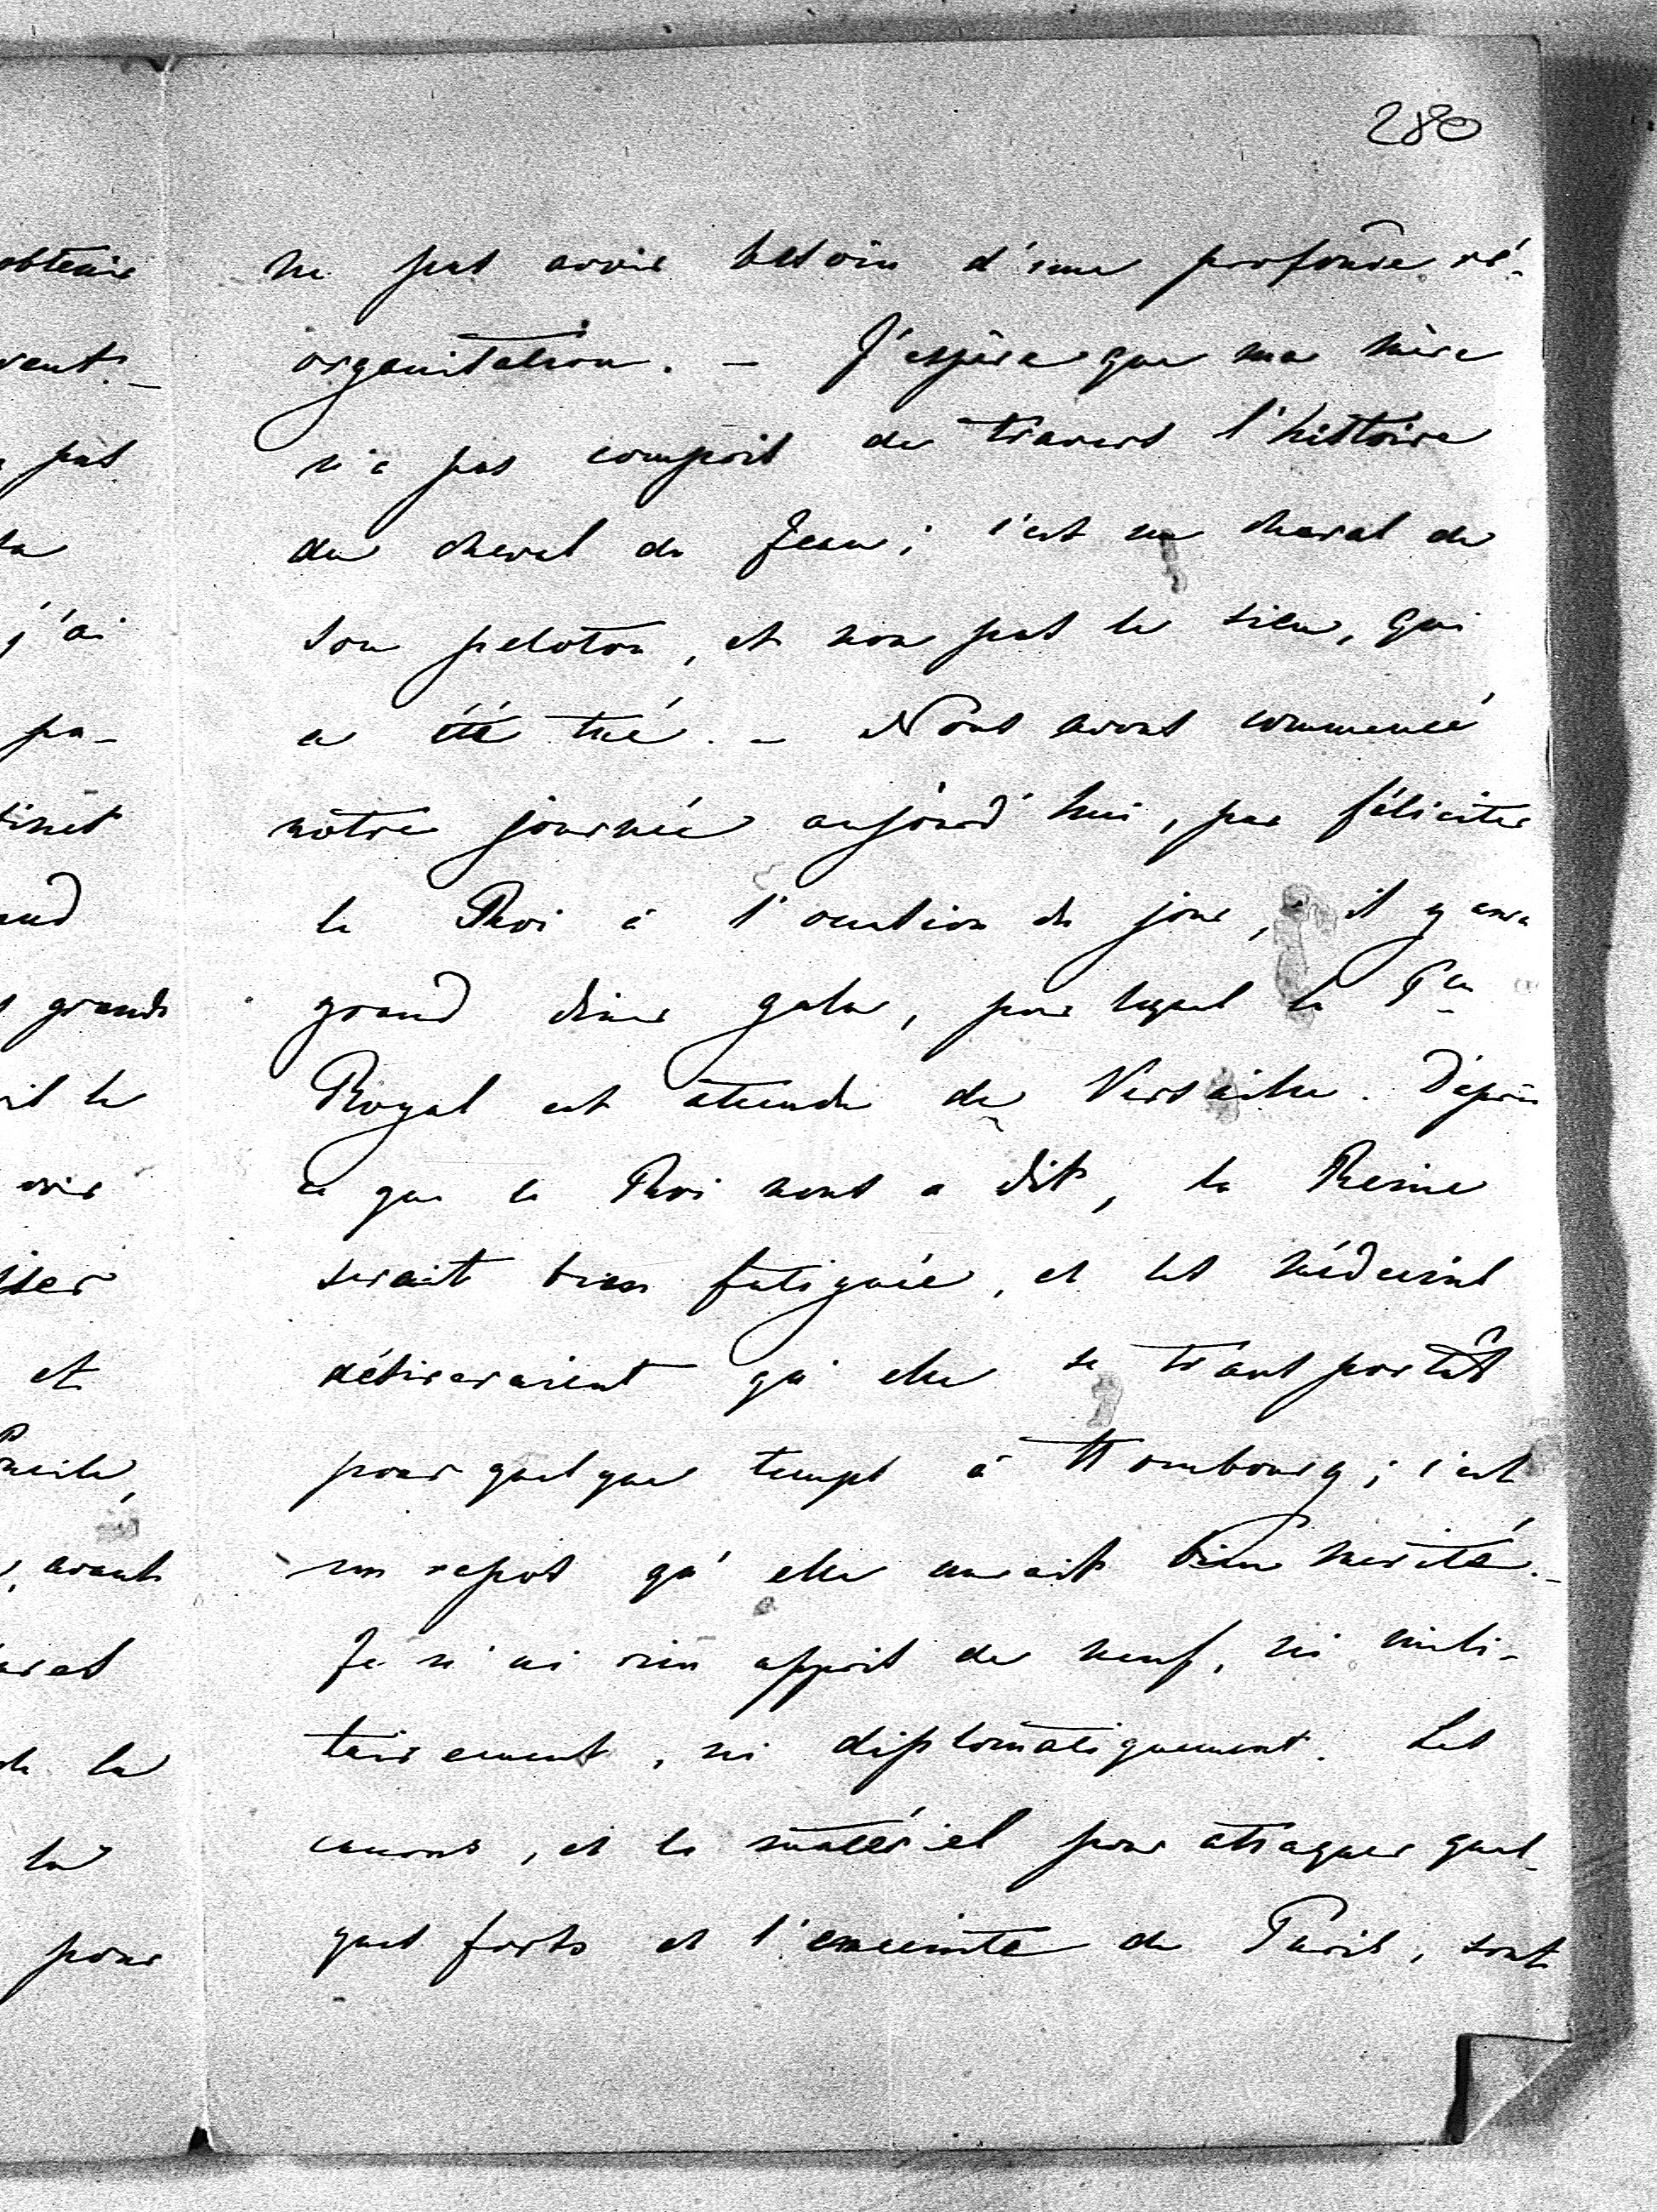 280
ne pas avoir besoin d'une profonde ré-
organisation. – J'espère que ma mère
n'a pas compris de travers l'histoire
du cheval de Jean; c'est un cheval de
son peloton, et non pas le sien, qui
a été tué. – Nous avons commencé
notre journée aujourd'hui, par féliciter
le Roi à l'occasion du jour, il y aura
grand diner gala, pour lequel le
Royal est attendu de Versailles. D'après
ce que le Roi nous a dit, la Reine
serait bien fatiguée, et les médecins
désireraient qu'elle se transportât
pour quelque temps à Hombourg; c'est
un repos qu'elle aurait bien mérité. –
Je n'ai rien appris de neuf, ni mili-
tairement, ni diplomatiquement. Les
canons, et le matériel pour attaquer quel-
ques forts et l'enceinte de Paris, sont
obtenir
pas
j'ai
pa-
grands
et
avant
la
pour